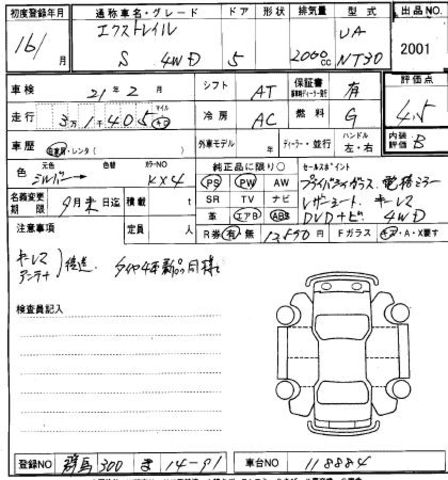 初度登録年月 通称車名・グレード ドア 形状 排気量 型式 出品NO.
16/ エクストレイル S 4WD 5 2000cc UA NT30 2001
車検 21年 2月 シフト AT 保証書 有 評価点
走行 3万1千405 マイル キロ 冷房 AC 燃料 G 4.5
車歴 自家用・レンタ( ) 外車モデル 年 ディーラー・並行 ハンドル 左・右 内装評価 B
色 元色 シルバー 色替 カラーNO KX4 純正品に限り○ セールスポイント
PS PW AW プライバシィガラス 電格ミラー
名義変更期限 9月末日迄 積載 t SR TV ナビ レザーシート キーレス
革 エアB ABS DVDナビ 4WD
注意事項 定員 人 R券 有 無 13,590円 Fガラス キズ・A・X要す
キーレス
アンテナ 後送 タイヤ4本新品同様
検査員記入
登録NO 群馬 300 ま 14-91 車台NO 118884